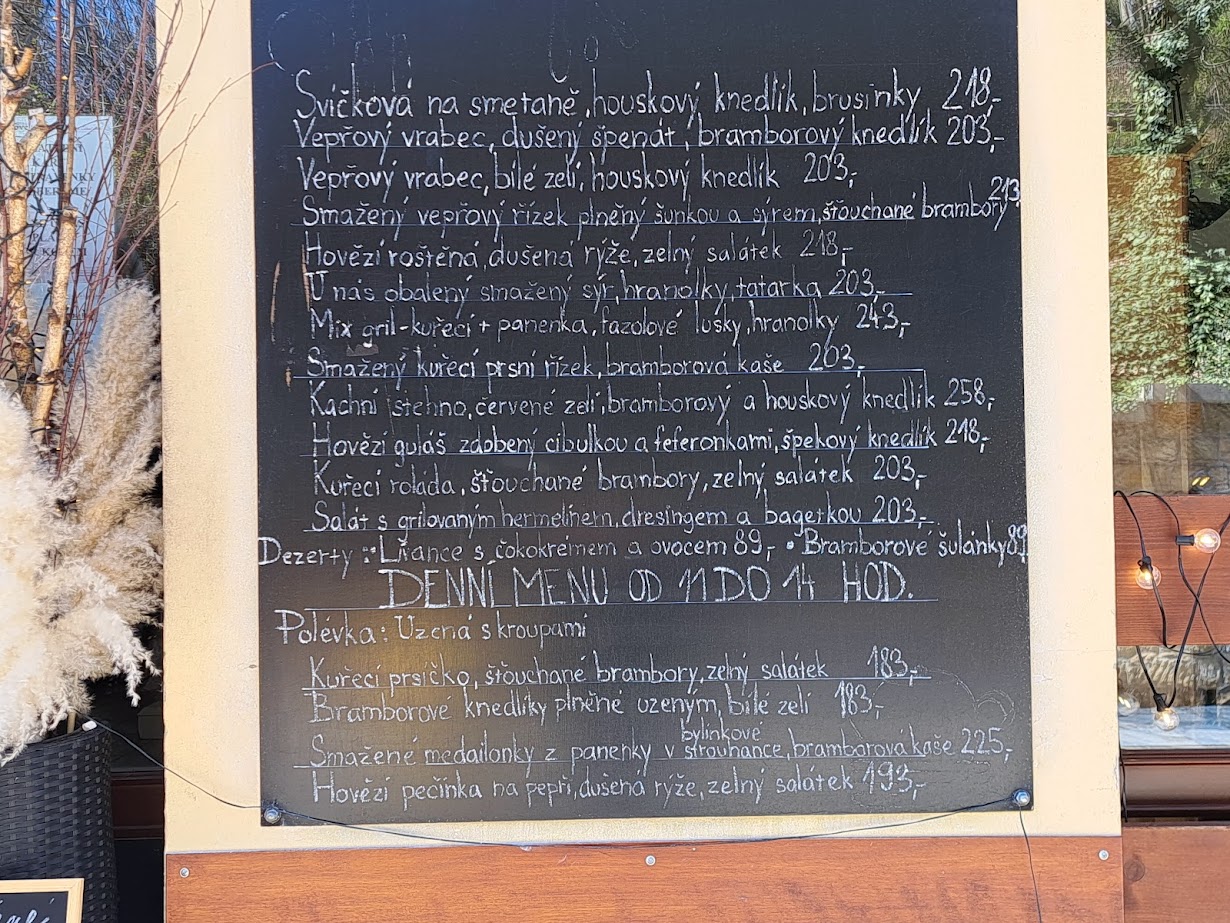 Svíčková na smetaně, houskový knedlík, brusinky 218,-
Vepřový vrabec, dušený špenát, bramborový knedlík 203,-
Vepřový vrabec, bílé zelí, houskový knedlík 203,-
Smažený vepřový řízek plněný šunkou a sýrem, šťouchané brambory 213,
Hovězí roštěná, dušená rýže, zelný salátek 218,-
U nás obalený smažený sýr, hranolky, tatarka 203,-
Mix gril-kuřecí + panenka, fazolové lusky, hranolky 243,-
Smažený kuřecí prsní řízek, bramborová kaše 203,-
Kachní stehno, červené zelí, bramborový a houskový knedlík 258,-
Hovězí guláš zdobený cibulkou a feferonkami, špekový knedlík 218,-
Kuřecí roláda, šťouchané brambory, zelný salátek 203,-
Salát s grilovaným hermelínem, dresingem a bagetkou 203,-
Dezerty: Lívance s čokokrémem a ovocem 89,- • Bramborové šulánky 89,
DENNÍ MENU OD 11 DO 14 HOD.
Polévka: Uzená s kroupami
Kuřecí prsíčko, šťouchané brambory, zelný salátek 183,-
Bramborové knedlíky plněné uzeným, bílé zelí 183,-
Smažené medailonky z panenky v bylinkové strouhance, bramborová kaše 225,-
Hovězí pečínka na pepři, dušená rýže, zelný salátek 193,-